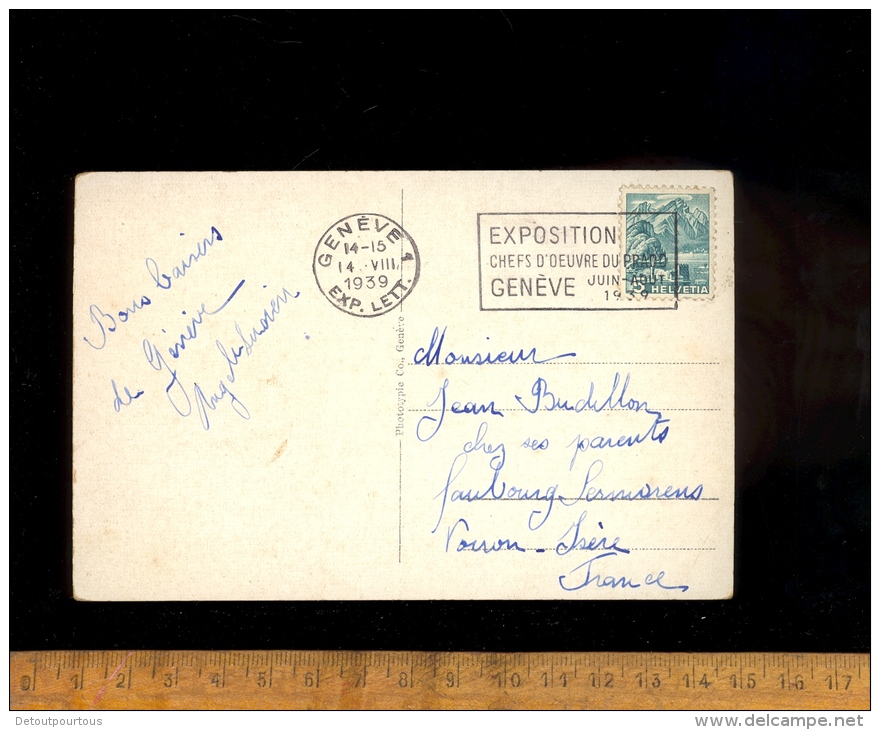 GENÈVE 1
14-15
14. VIII
1939
EXP. LETT.
EXPOSITION
CHEFS D'OEUVRE DU PRADO
JUIN-AOUT
GENÈVE
1939
HELVETIA
Bons baisers
de Genève
Phototypie Co., Genève
Monsieur
Jean Budillon
chez ses parents
faubourg Sermorens
Voiron - Isère
France
0 1 2 3 4 5 6 7 8 9 10 11 12 13 14 15 16 17
Detoutpourtous
www.delcampe.net